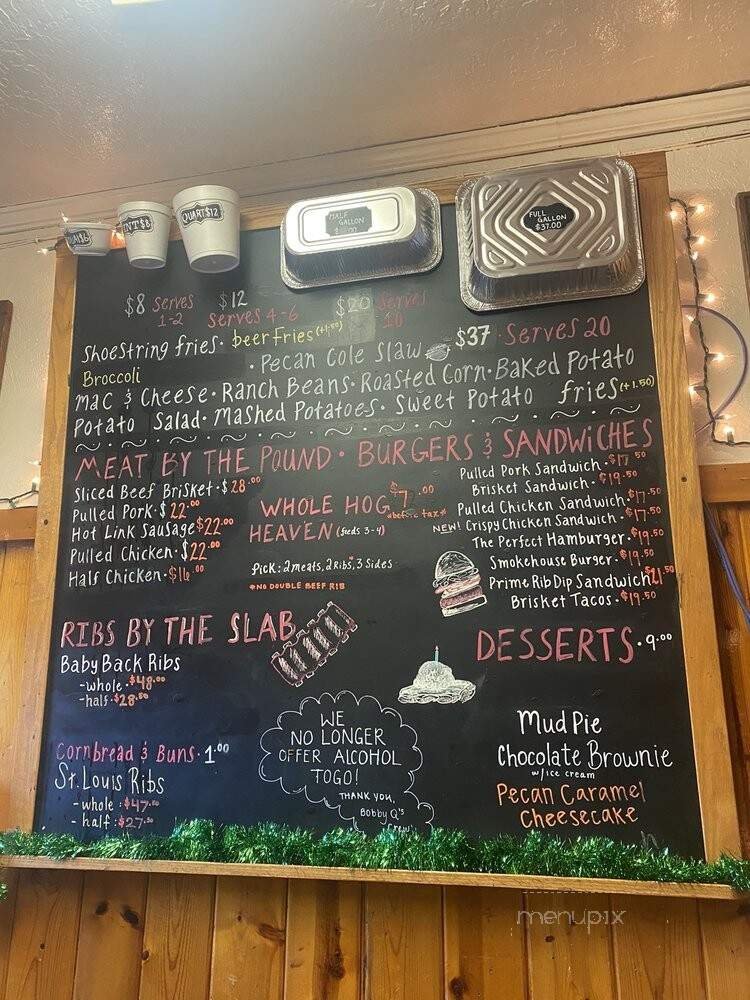 NT $8
QUART $12
HALF
GALLON
FULL
GALLON
$37.00
$8 serves
1-2
$12
serves 4-6
$20 serves
10
$37 • serves 20
shoestring fries • beer Fries (+1.50)
• Pecan Cole Slaw
Broccoli
Mac & Cheese • Ranch Beans • Roasted Corn • Baked Potato
Potato Salad • Mashed Potatoes • Sweet Potato fries (+1.50)
MEAT BY THE POUND • BURGERS & SANDWICHES
Sliced Beef Brisket • $28.00
Pulled Pork • $22.00
Hot Link Sausage $22.00
Pulled Chicken • $22.00
Half Chicken • $16.00
WHOLE HOG
HEAVEN (feeds 3-4)
*before tax*
Pick: 2 meats, 2 Ribs*, 3 Sides
*NO DOUBLE BEEF RIB
Pulled Pork Sandwich • $17.50
Brisket Sandwich • $19.50
Pulled Chicken Sandwich • $17.50
NEW! Crispy Chicken Sandwich • $17.50
The Perfect Hamburger • $19.50
Smokehouse Burger • $19.50
Prime Rib Dip Sandwich $21.50
Brisket Tacos • $19.50
RIBS BY THE SLAB
Baby Back Ribs
- whole • $48.00
- half • $28.50
Cornbread & Buns • 1.00
St. Louis Ribs
- whole : $47.00
- half : $27.50
WE
NO LONGER
OFFER ALCOHOL
TOGO!
THANK YOU,
Bobby Q's
Crew
DESSERTS • 9.00
Mud Pie
Chocolate Brownie
w/ ice cream
Pecan Caramel
Cheesecake
menupix